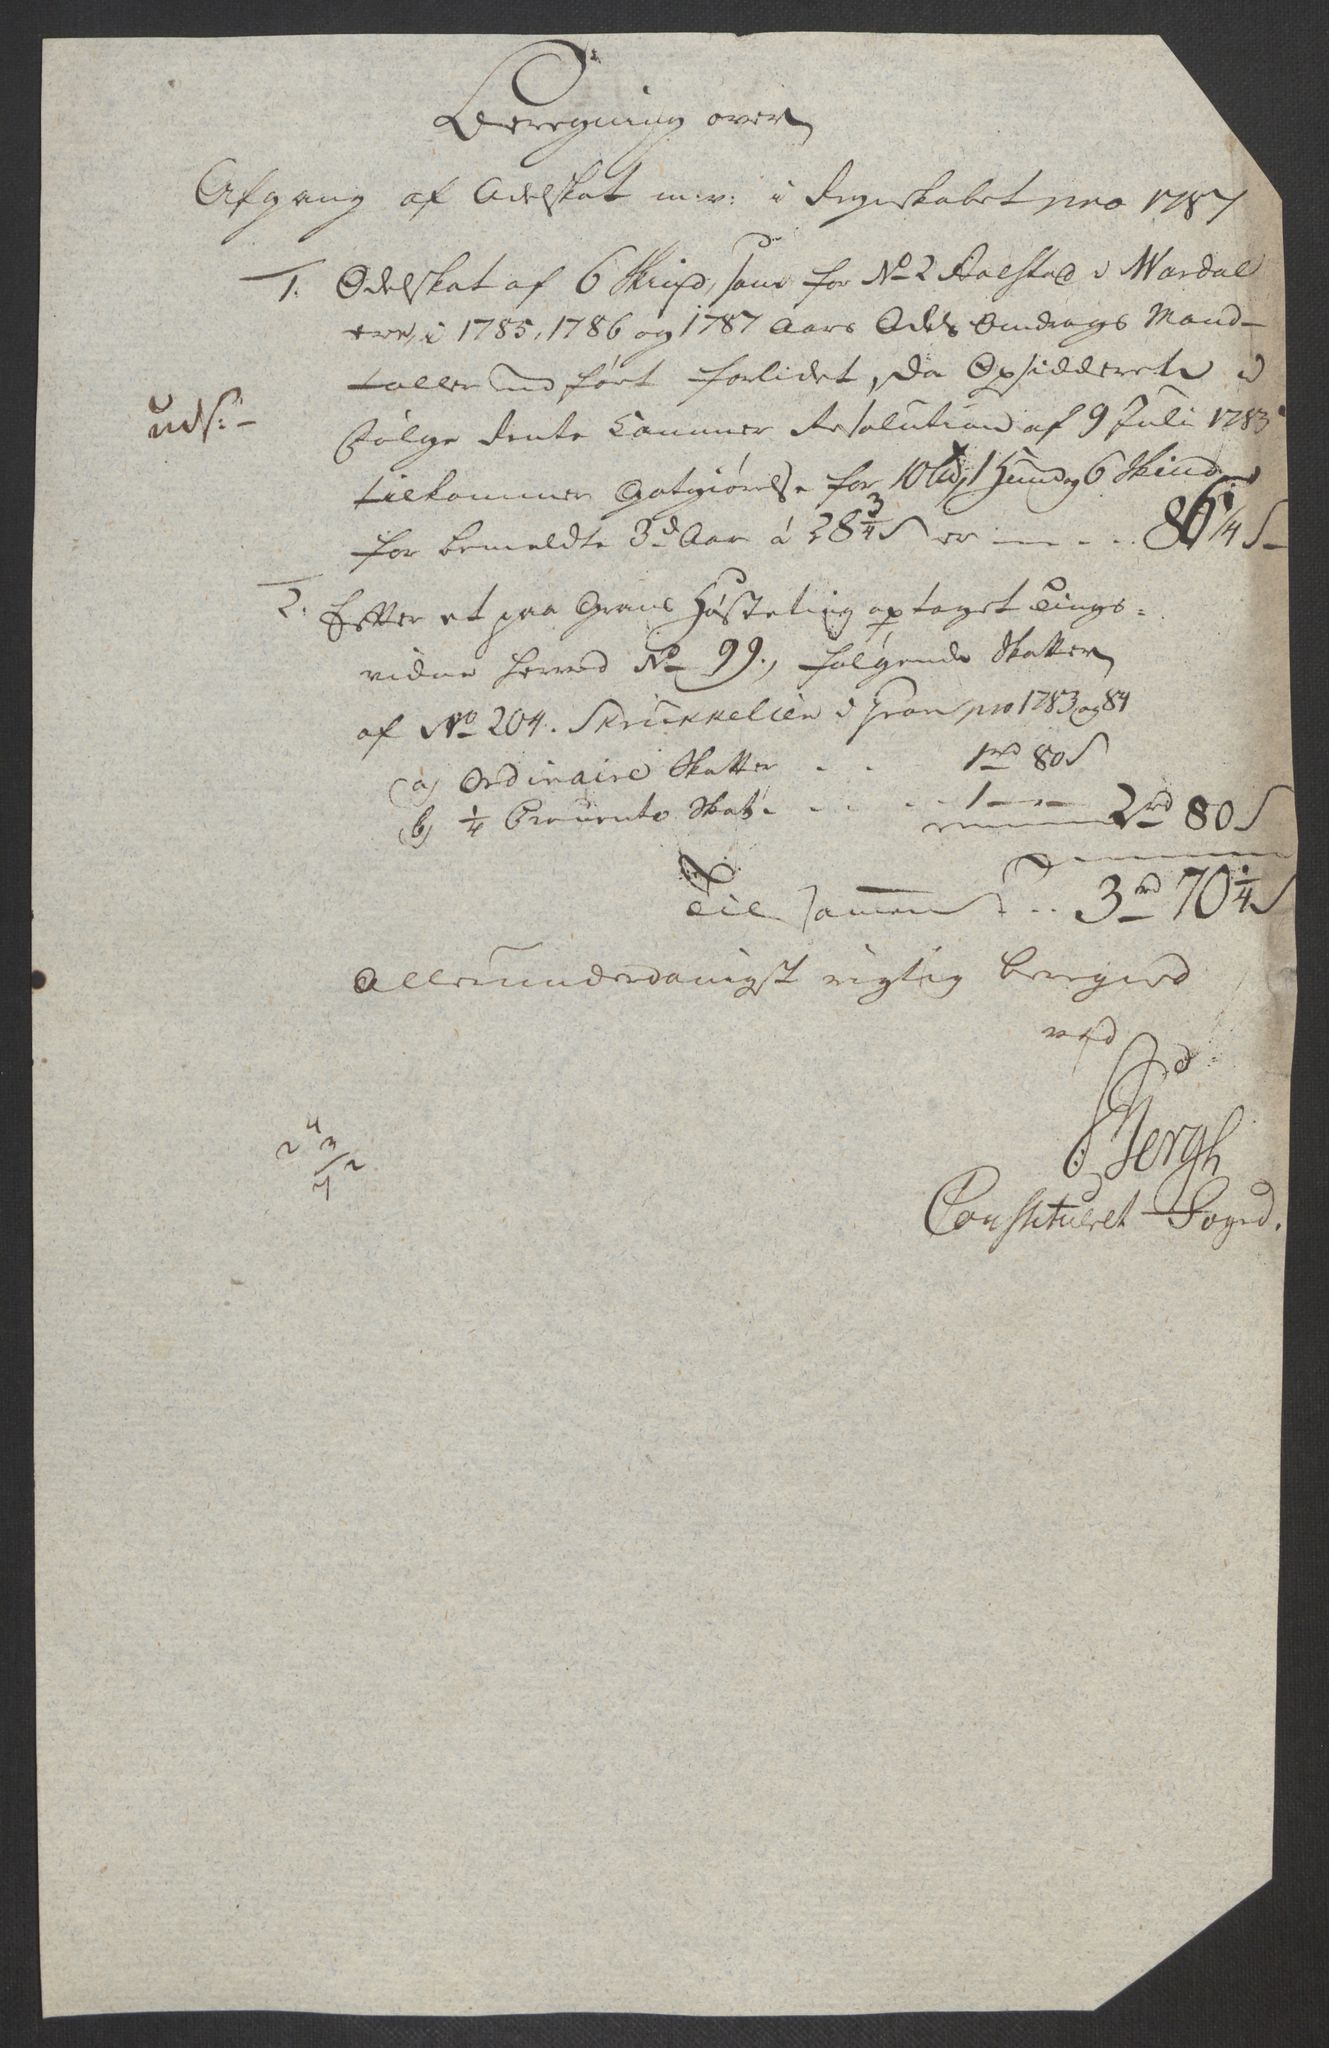 Beregning over
Afgang af Odelskat m.v: i Regnskabet pro 1787
1. Odelskat af 6 Skind, som for No 2 Aalstad i Wardal
ere, i 1785, 1786 og 1787 Aars Odels Omdrags Mand-
taller ind ført forlidet, da Opsidderen i
uds:
Følge Rente Cammer Resolution af 9 Juli 1783
tilkommer Gotgiørelse for 10 1 Hund og 6 Skind
for bemeldte 3de Aar á 28 3/4 S er - - - 86 1/4 S
2. Efter et paa Grans Høsteting optaget Tings-
vidne herved No 99., følgende Skatter
af No 204. Skrukkelien i Gran pro 1783 og 84
(a) Ordinaire Skatter - - 1 rd 80 S
(b) 1/4 Procento Skat - - - 1 - - 2 rd 80 S
Tilsammen - - 3 rd 70 1/4 S
Allerunderdanigst rigtig beregned
ved
Bergh
Constitueret Foged.